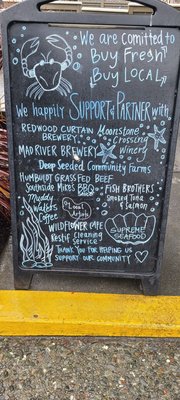 We are comitted to
Buy Fresh
Buy LOCAL
We happily SUPPORT & PARTNER with
REDWOOD CURTAIN
BREWERY
Moonstone
Crossing
Winery
MAD RIVER BREWERY
Deep Seeded Community Farms
HUMBOLDT GRASS FED BEEF
Southside Mikes BBQ
SAUCE
FISH BROTHERS
Smoked Tuna
& Salmon
Muddy
Waters
Coffee
Local
Artists
WILDFLOWER CAFE
Restif Cleaning
Service
SUPREME
SEAFOOD
THANK YOU FOR HELPING US
SUPPORT OUR COMMUNITY